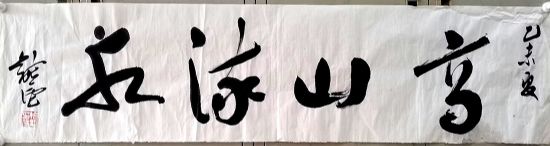 乙未夏
高山流水